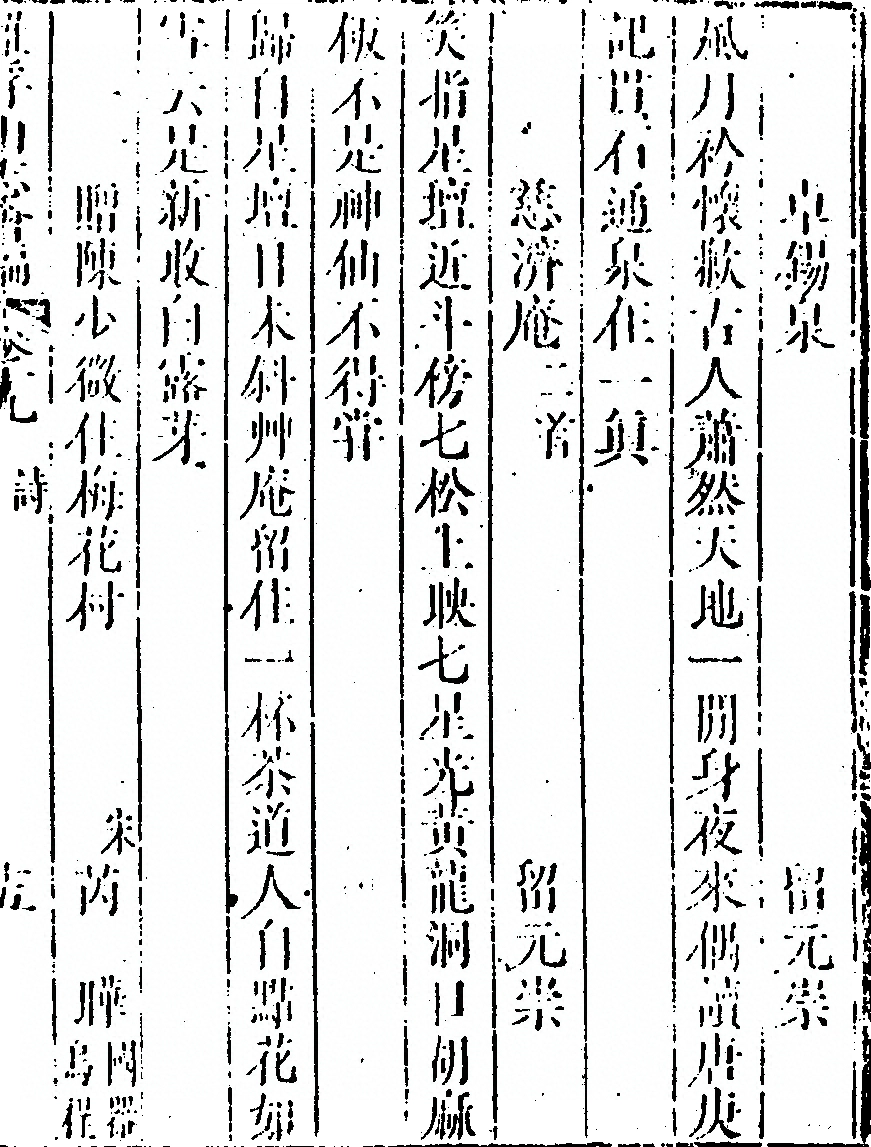 卓錫泉 留元崇
風月衿懷歉古人蕭然天地一閒身夜來偶讀唐庚
記貫石通泉在一眞
慈濟庵二首 留元崇
笑指星壇近斗傍七松上映七星光黃龍洞口胡麻
飯不是神仙不得嘗
歸自星壇日未斜艸庵留住一杯茶道人自點花如
雪云是新收白露芽
贈陳少微住梅花村 宋芮 瞱國器烏程
羅浮山志會編 詩